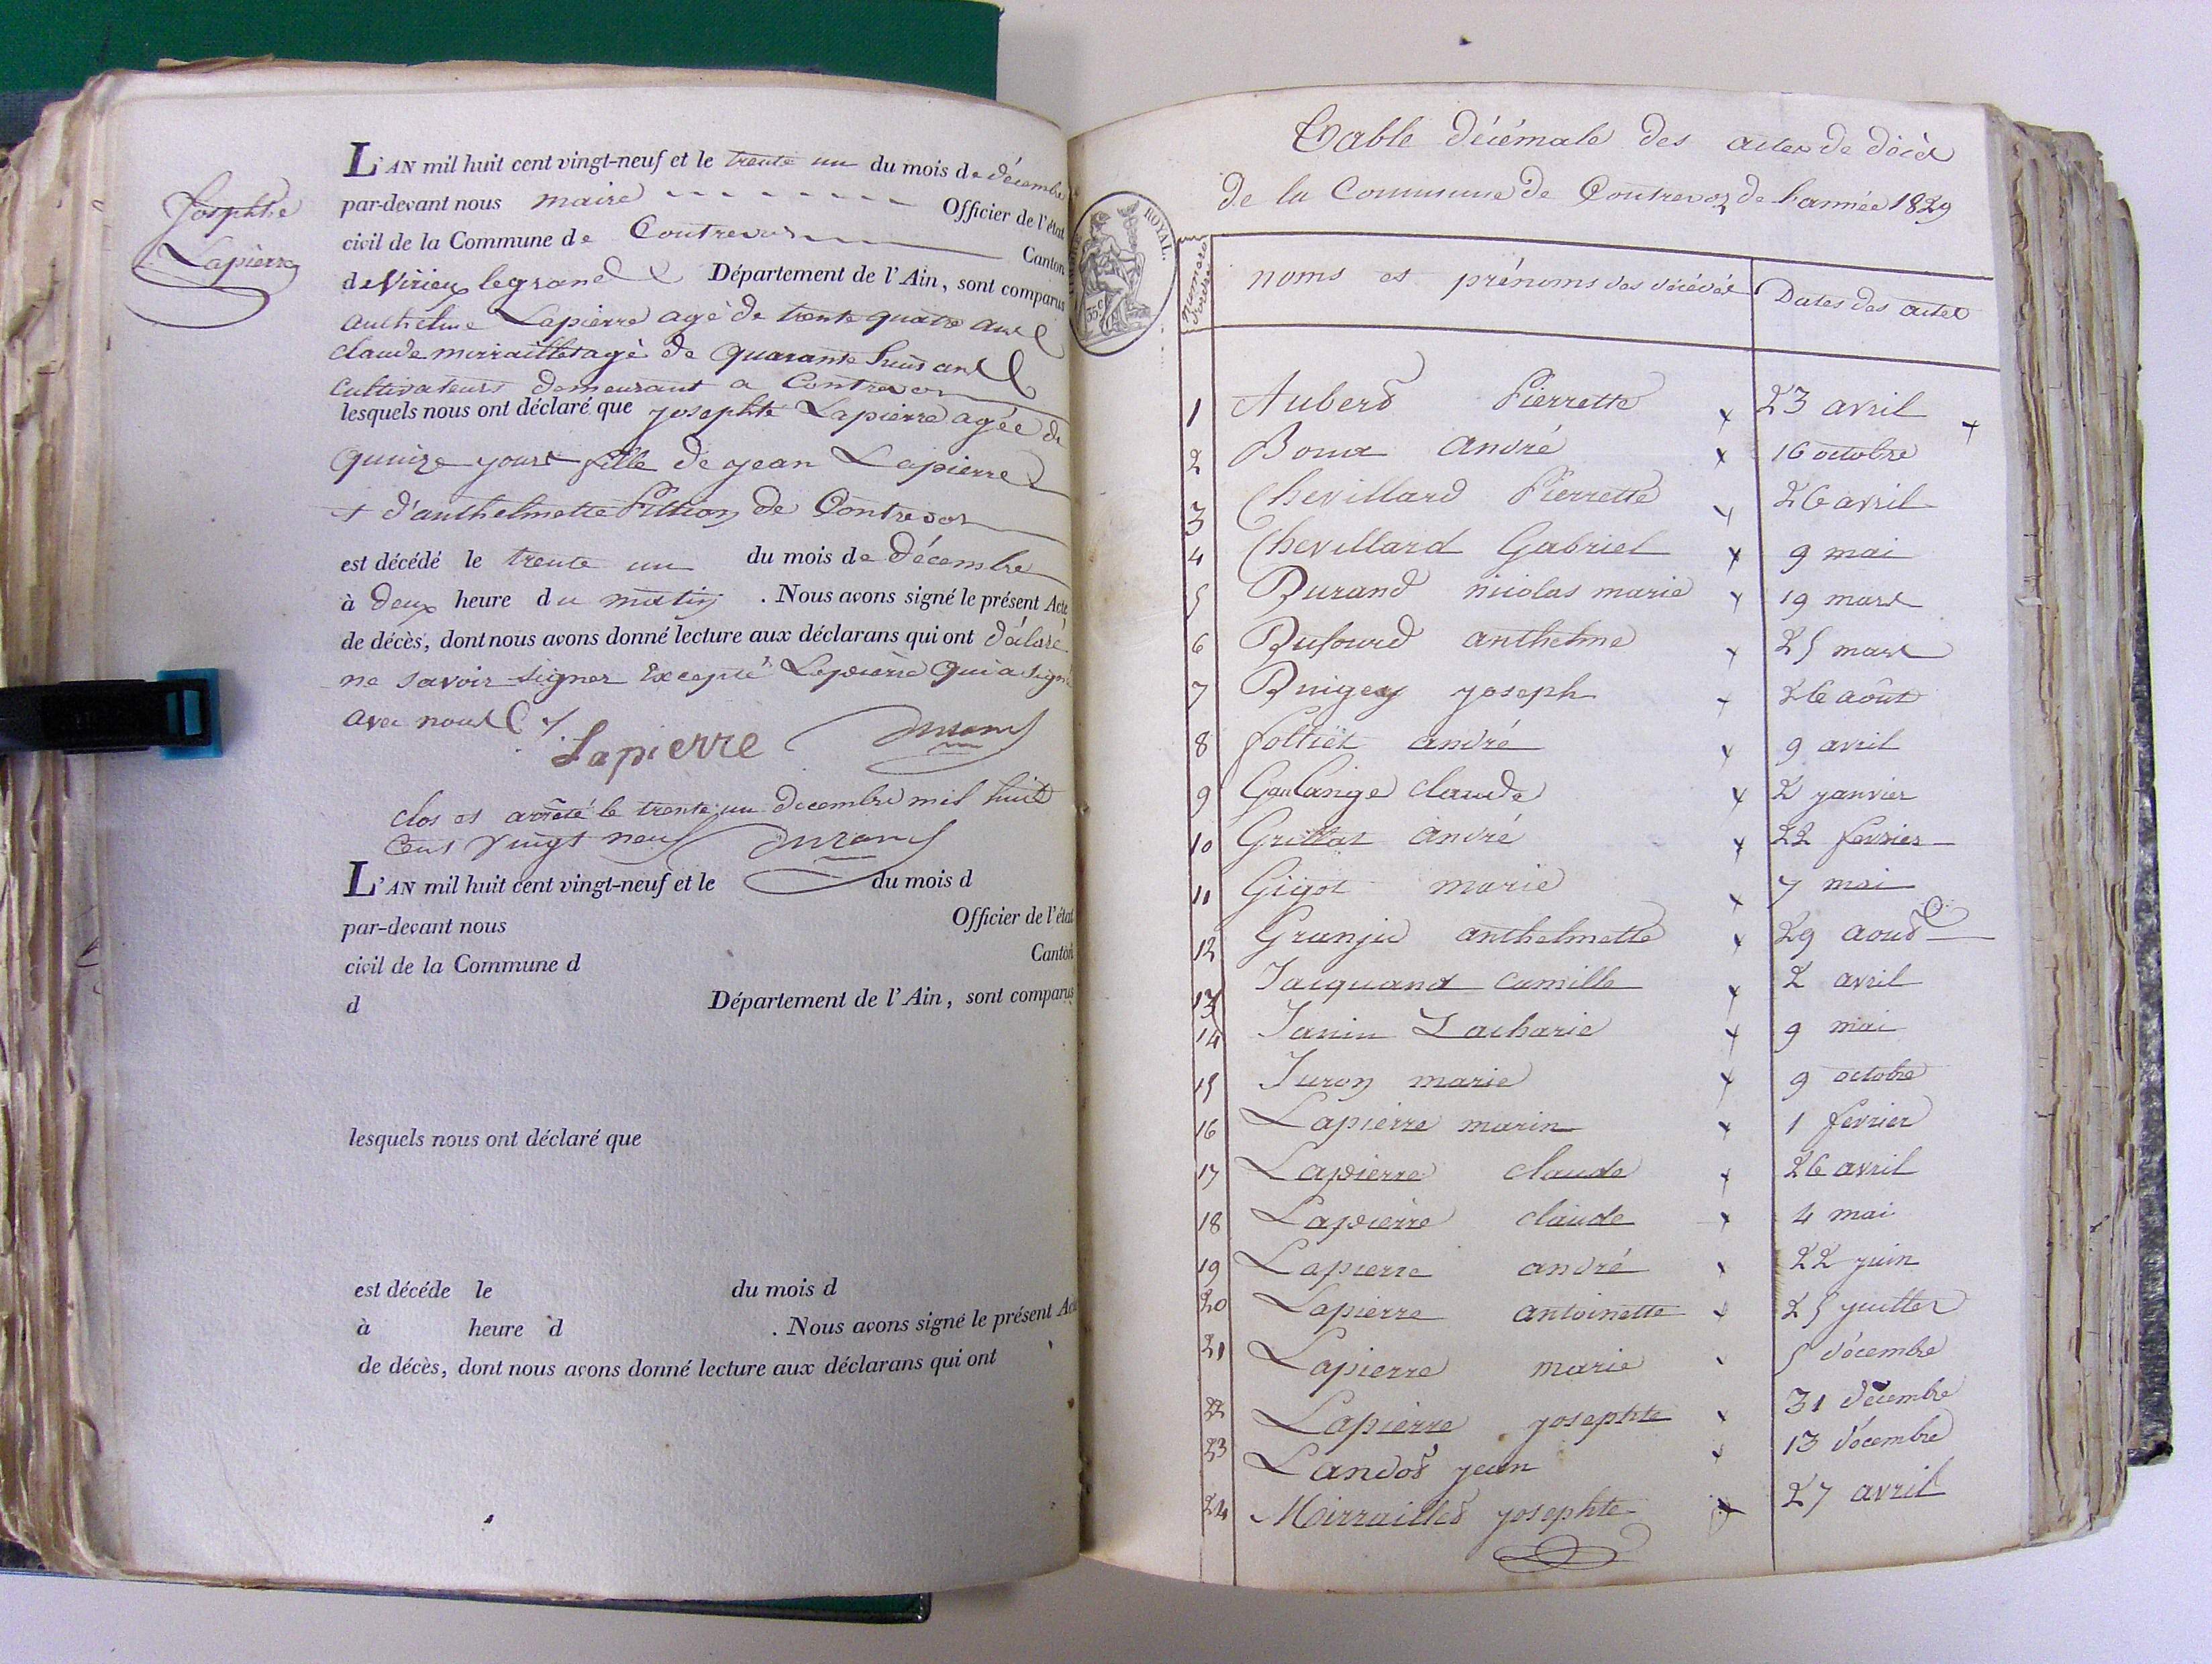 Josephte
Lapierre
L'AN mil huit cent vingt-neuf et le trente un du mois de décembre
par-devant nous maire Officier de l'état
civil de la Commune de Contrevoz Canton
de Virieu legrand Département de l'Ain, sont comparus
anthelme Lapierre agé de trente quatre ans
claude mirraillet agé de quarante huit ans
cultivateurs demeurant a Contrevoz
lesquels nous ont déclaré que josephte Lapierre agée de
quinze jours fille de jean Lapierre
et d'anthelmette Pittion de Contrevoz
est décédé le trente un du mois de décembre
à deux heure du matin . Nous avons signé le présent Acte
de décès, dont nous avons donné lecture aux déclarans qui ont déclaré
ne savoir signer Excepté Lapierre qui a signé
avec nous
Lapierre Durand
clos et arrêté le trente un decembre mil huit
cent vingt neuf Durand
L'AN mil huit cent vingt-neuf et le du mois d
par-devant nous Officier de l'état
civil de la Commune d Canton
d Département de l'Ain, sont comparus
lesquels nous ont déclaré que
est décéde le du mois d
à heure d . Nous avons signé le présent Acte
de décès, dont nous avons donné lecture aux déclarans qui ont
Table décémale des actes de décès
de la Commune de Contrevoz de l'année 1829
ROYAL.
35c
numero d'ordre noms et prénoms des décédés Dates des actes
1 Auberd Pierrette 23 avril
2 Boux andré 16 octobre
3 Chevillard Pierrette 26 avril
4 Chevillard Gabriel 9 mai
5 Durand nicolas marie 19 mars
6 Dufourd anthelme 25 mars
7 Duigey joseph 26 août
8 folliet andré 9 avril
9 Goulange claude 2 janvier
10 Grillat andré 22 fevrier
11 Gigot marie 7 mai
12 Granju anthelmette 29 aoud
13 Jacquand camille 2 avril
14 Janin Zacharie 9 mai
15 Juron marie 9 octobre
16 Lapierre marin 1 fevrier
17 Lapierre claude 26 avril
18 Lapierre claude 4 mai
19 Lapierre andré 22 juin
20 Lapierre antoinette 25 juillet
21 Lapierre marie 5 décembre
22 Lapierre josephte 31 décembre
23 Landod jean 13 décembre
24 Mirrailled josephte 27 avril